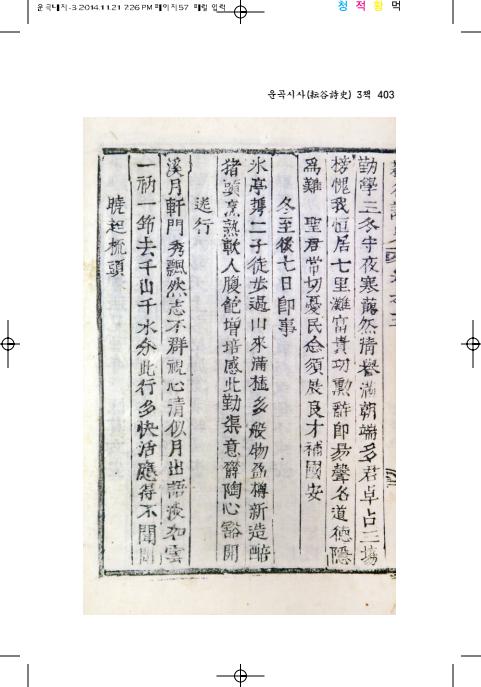 운곡내지-3 2014.11.21 7:26 PM 페이지57 매킬 입력
청 적 황 먹
운곡시사(耘谷詩史) 3책 403
勤學三冬守夜寒藹然淸譽滿朝端多君卓占三場
愧我恒居七里灘富貴功勳辭即易聲名道德隱
爲難 聖君常切憂民念須展良才補國安
冬至後七日卽事
氷亭携二子徒步過山來滿榼多般物盈樽新造醅
猪頭烹熟軟人腹飽增培感此勤渠意齊陶心豁開
送行
溪月軒門秀飄然志不群視心淸似月出語淡如雲
一衲一筇去千山千水分此行多快活應得不聞聞
曉起梳頭